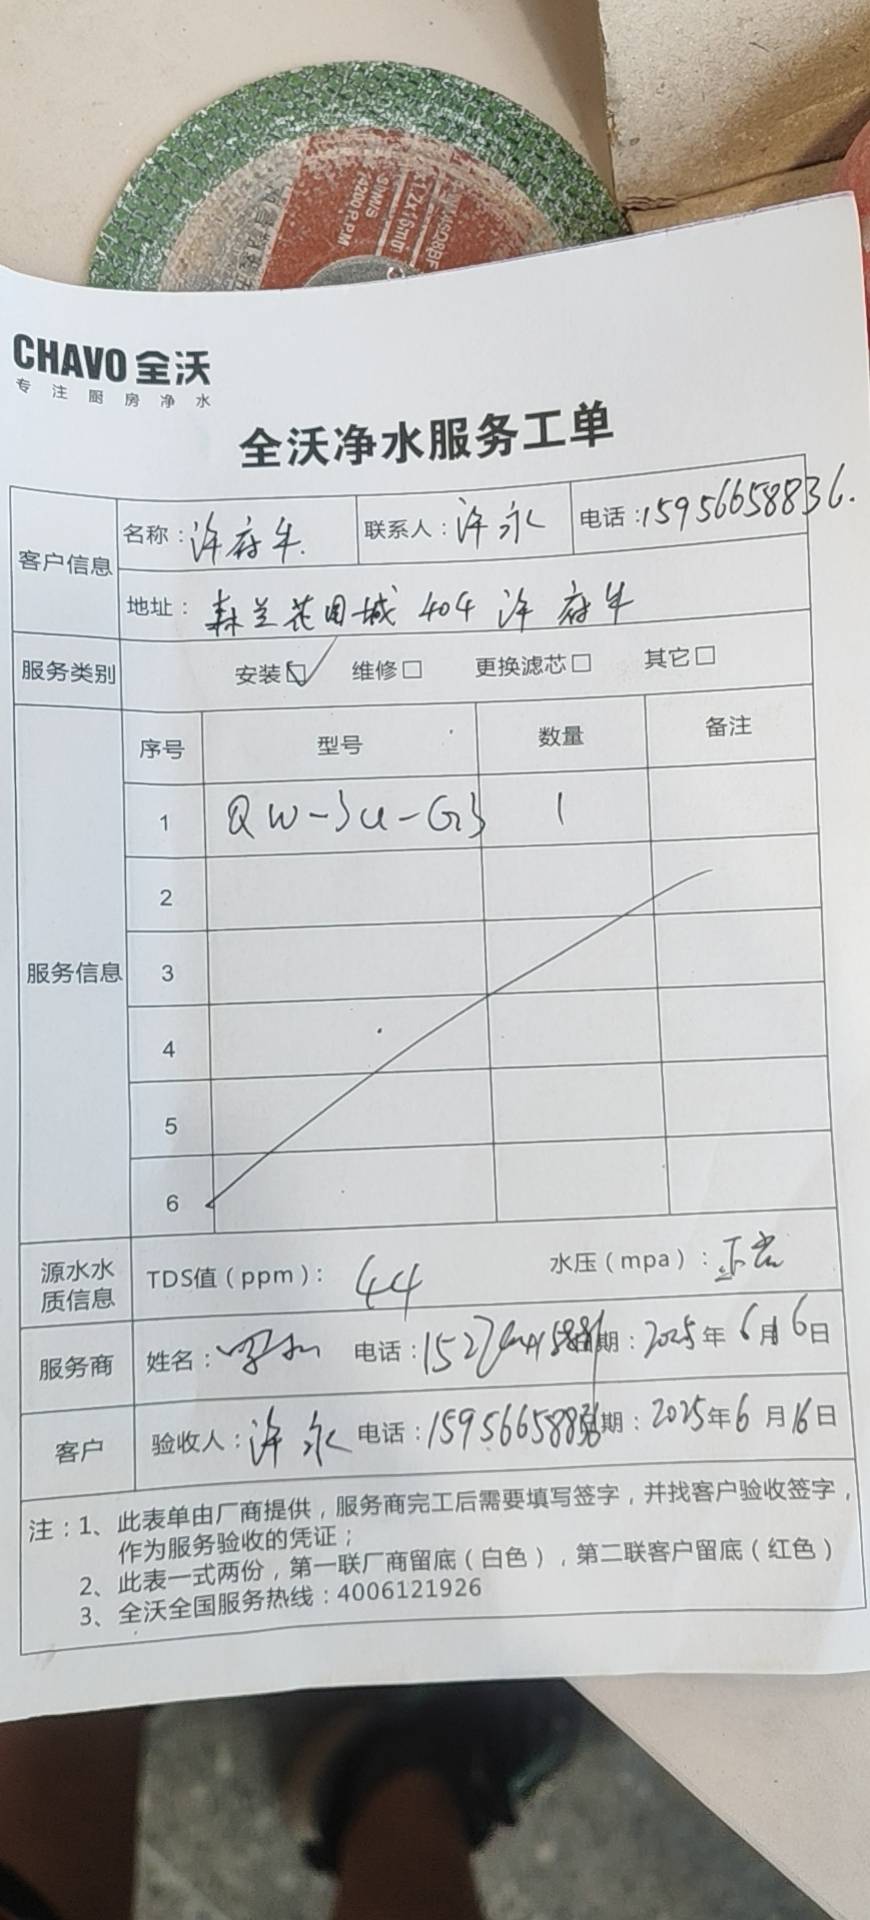 CHAVO 全沃
专注厨房净水
全沃净水服务工单
客户信息
名称：许府牛
联系人：许永
电话：15956658836.
地址：森兰花园城 404 许府牛
服务类别
安装☑ 维修□ 更换滤芯□ 其它□
服务信息
序号 型号 数量 备注
1 QW-3U-G3 1
2
3
4
5
6
源水水质信息
TDS值（ppm）：44
水压（mpa）：正常
服务商
姓名：
电话：
期：2025年6月16日
客户
验收人：许永
电话：15956658836
期：2025年6月16日
注：1、此表单由厂商提供，服务商完工后需要填写签字，并找客户验收签字，
作为服务验收的凭证；
2、此表一式两份，第一联厂商留底（白色），第二联客户留底（红色）
3、全沃全国服务热线：4006121926